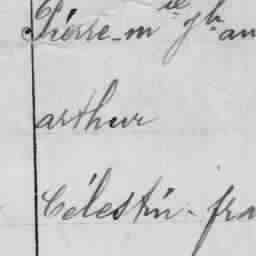 Pierre-m ie jh an
arthur
Célestin-fra